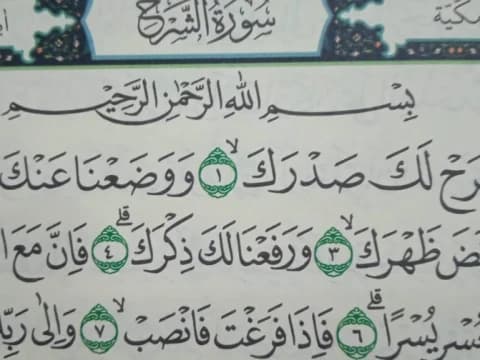 سُوْرَةُ الشَّرْحِ
بِسْمِ اللهِ الرَّحْمٰنِ الرَّحِيْمِ
رَحْ لَكَ صَدْرَكَۙ ١ وَوَضَعْنَا عَنْكَ
ضَ ظَهْرَكَۙ ٣ وَرَفَعْنَا لَكَ ذِكْرَكَۗ ٤ فَاِنَّ مَعَ ا
عُسْرِ يُسْرًاۗ ٦ فَاِذَا فَرَغْتَ فَانْصَبْۙ ٧ وَاِلٰى رَبِّ